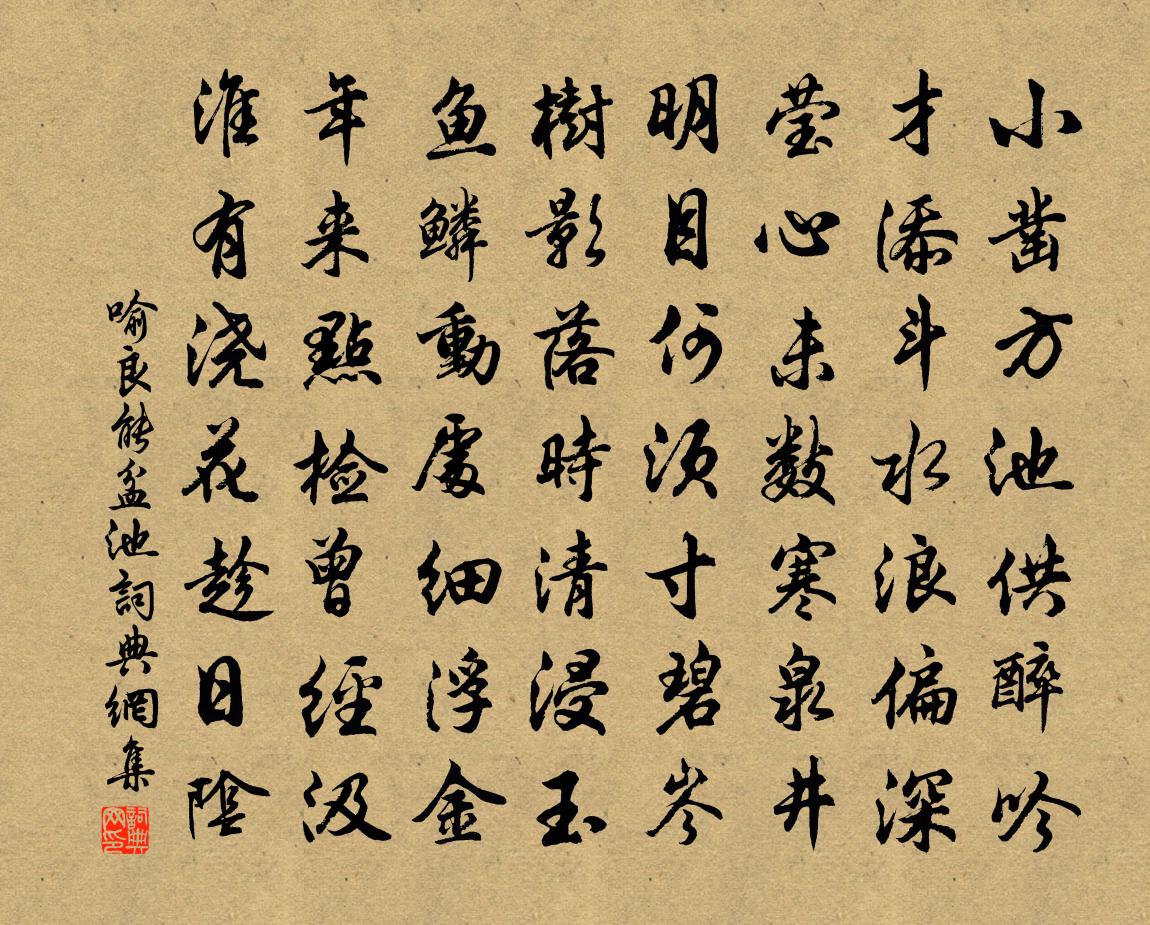 小凿方池供醉吟
才添斗水浪偏深
莹心未数寒泉井
明目何须寸碧岑
樹影落時清浸玉
鱼鳞動處细浮金
年来點检曾經汲
淮有浇花趁日陰
喻良能盆池詞典網集
詞典网印